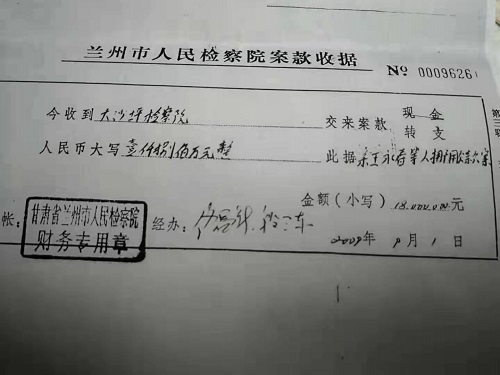 兰州市人民检察院案款收据
№ 0009626
今收到 大沙坪检察院 交来案款 现金
转支
人民币大写 壹仟捌佰万元整 此据
金额(小写) 18.000.000 元
帐: 甘肃省兰州市人民检察院 经办:
财务专用章
2009年 9月 1日